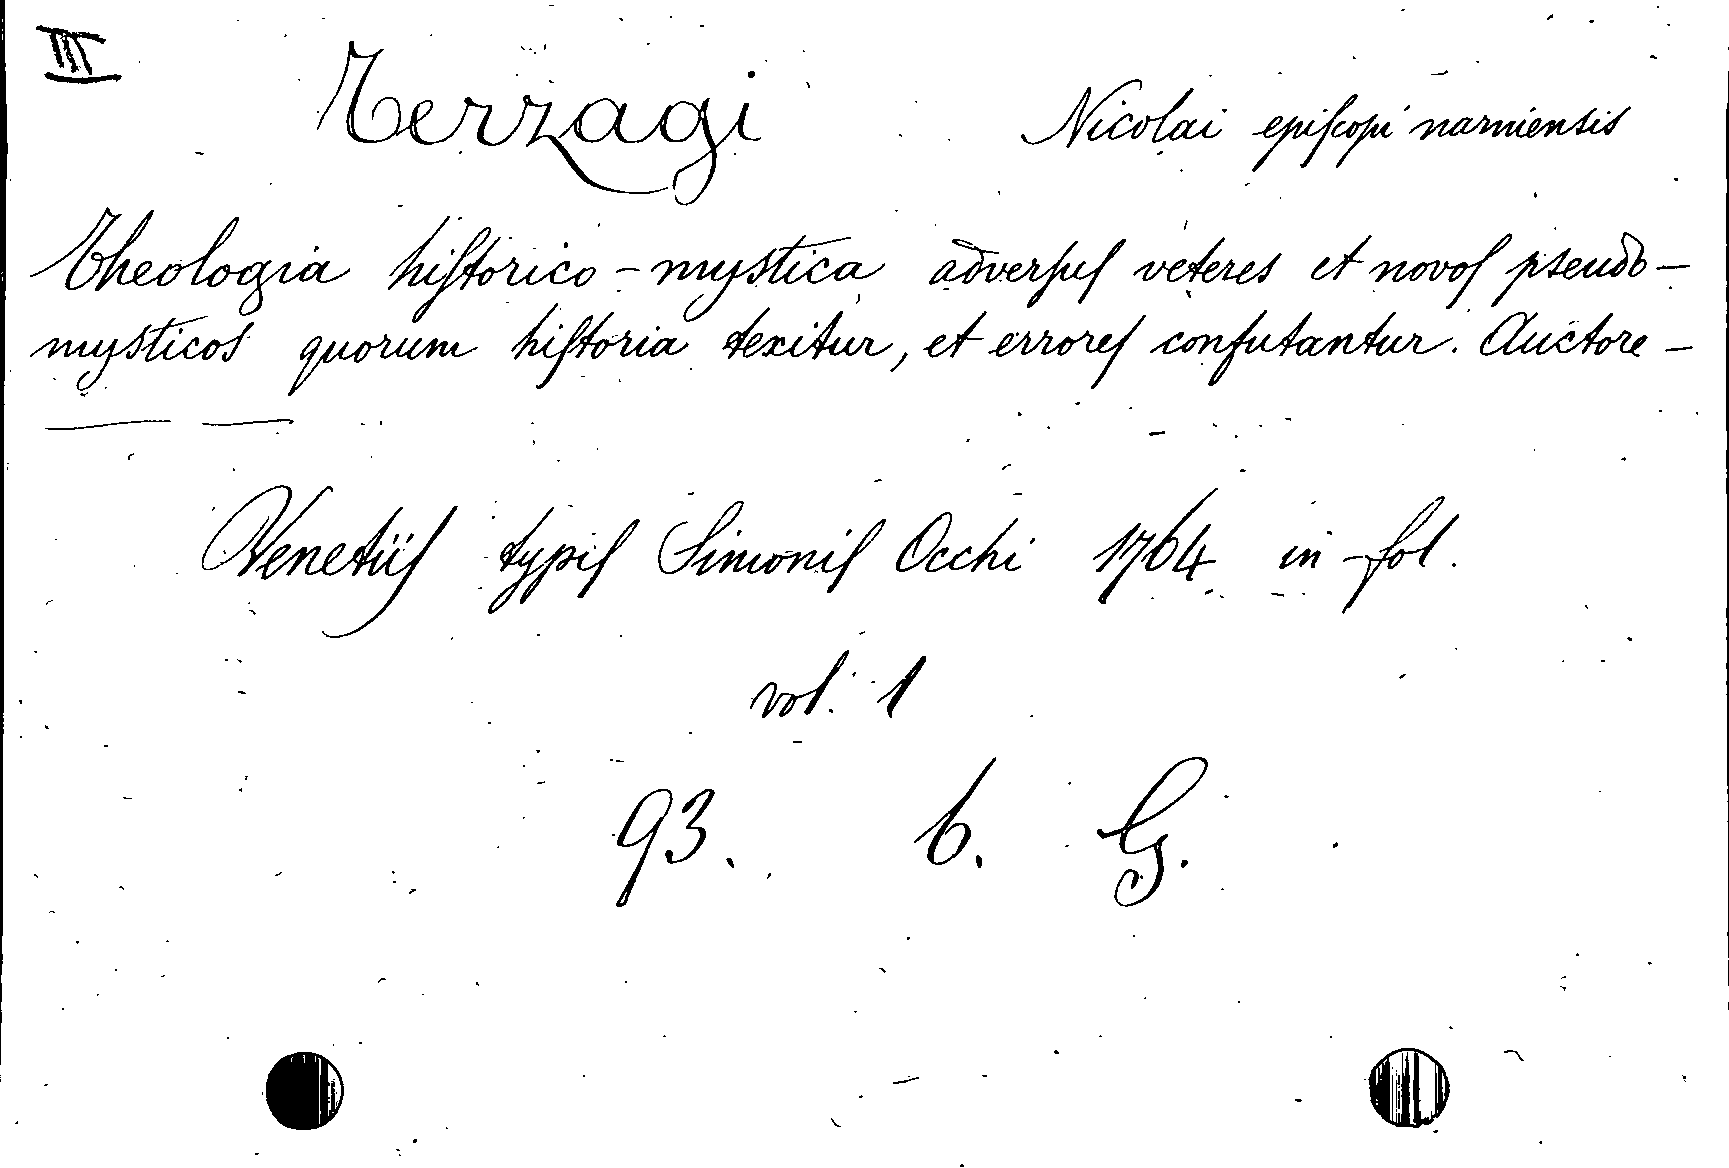 III
Terzagi Nicolai epiſcopi narniensis
Theologia hiſtorico-mystica adverſuſ veteres et novoſ pseudo-
mysticos quorum hiſtoria texitur, et erroreſ confutantur. Auctore -
—— ——
Venetiiſ typiſ Simoniſ Occhi 1764 in-fol.
vol. 1
93. b. G.